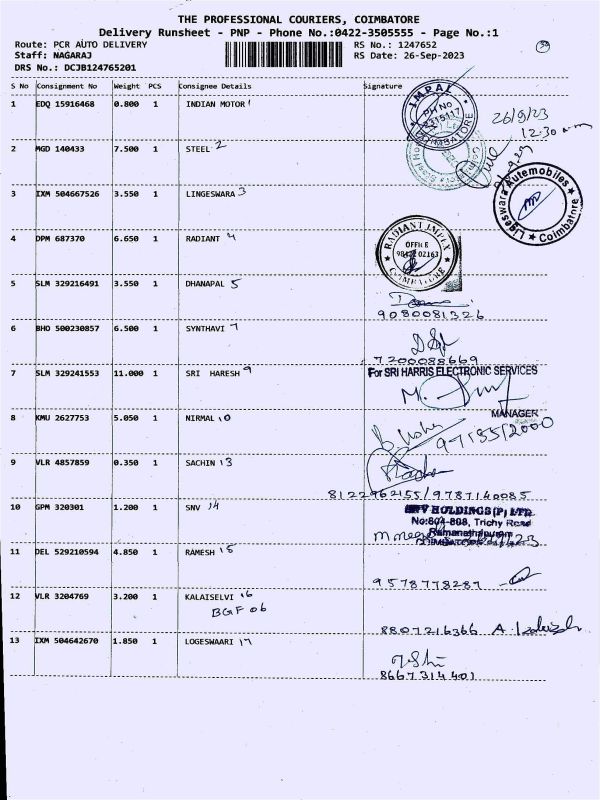 THE PROFESSIONAL COURIERS, COIMBATORE
Delivery Runsheet - PNP - Phone No.:0422-3505555 - Page No.:1
Route: PCR AUTO DELIVERY RS No.: 1247652
Staff: NAGARAJ RS Date: 26-Sep-2023
DRS No.: DCJB124765201
S No Consignment No Weight PCS Consignee Details Signature
1 EDQ 15916468 0.800 1 INDIAN MOTOR 1
IMPAL
PH No
2315117
COIMBATORE
26/9/23
12.30 a.m
2 MGD 140433 7.500 1 STEEL 2
3 IXM 504667526 3.550 1 LINGESWARA 3
Ligeswara Automobiles
★ Coimbatore ★
4 DPM 687370 6.650 1 RADIANT 4
RADIANT IMPEX
OFFICE
COIMBATORE
5 SLM 329216491 3.550 1 DHANAPAL 5
9080081326
6 BHO 500230857 6.500 1 SYNTHAVI 7
7200088669
7 SLM 329241553 11.000 1 SRI HARESH 9
For SRI HARRIS ELECTRONIC SERVICES
MANAGER
8 KMU 2627753 5.050 1 NIRMAL 10
9 VLR 4857859 0.350 1 SACHIN 13
8122962155/9787140085
10 GPM 320301 1.200 1 SNV 14
HOLDINGS (P) LTD
No:804-808, Trichy Road
Ramanathapuram
11 DEL 529210594 4.850 1 RAMESH 15
9578778287
12 VLR 3204769 3.200 1 KALAISELVI 16
BGF 06
8807216366
13 IXM 504642670 1.850 1 LOGESWAARI 17
8667314401